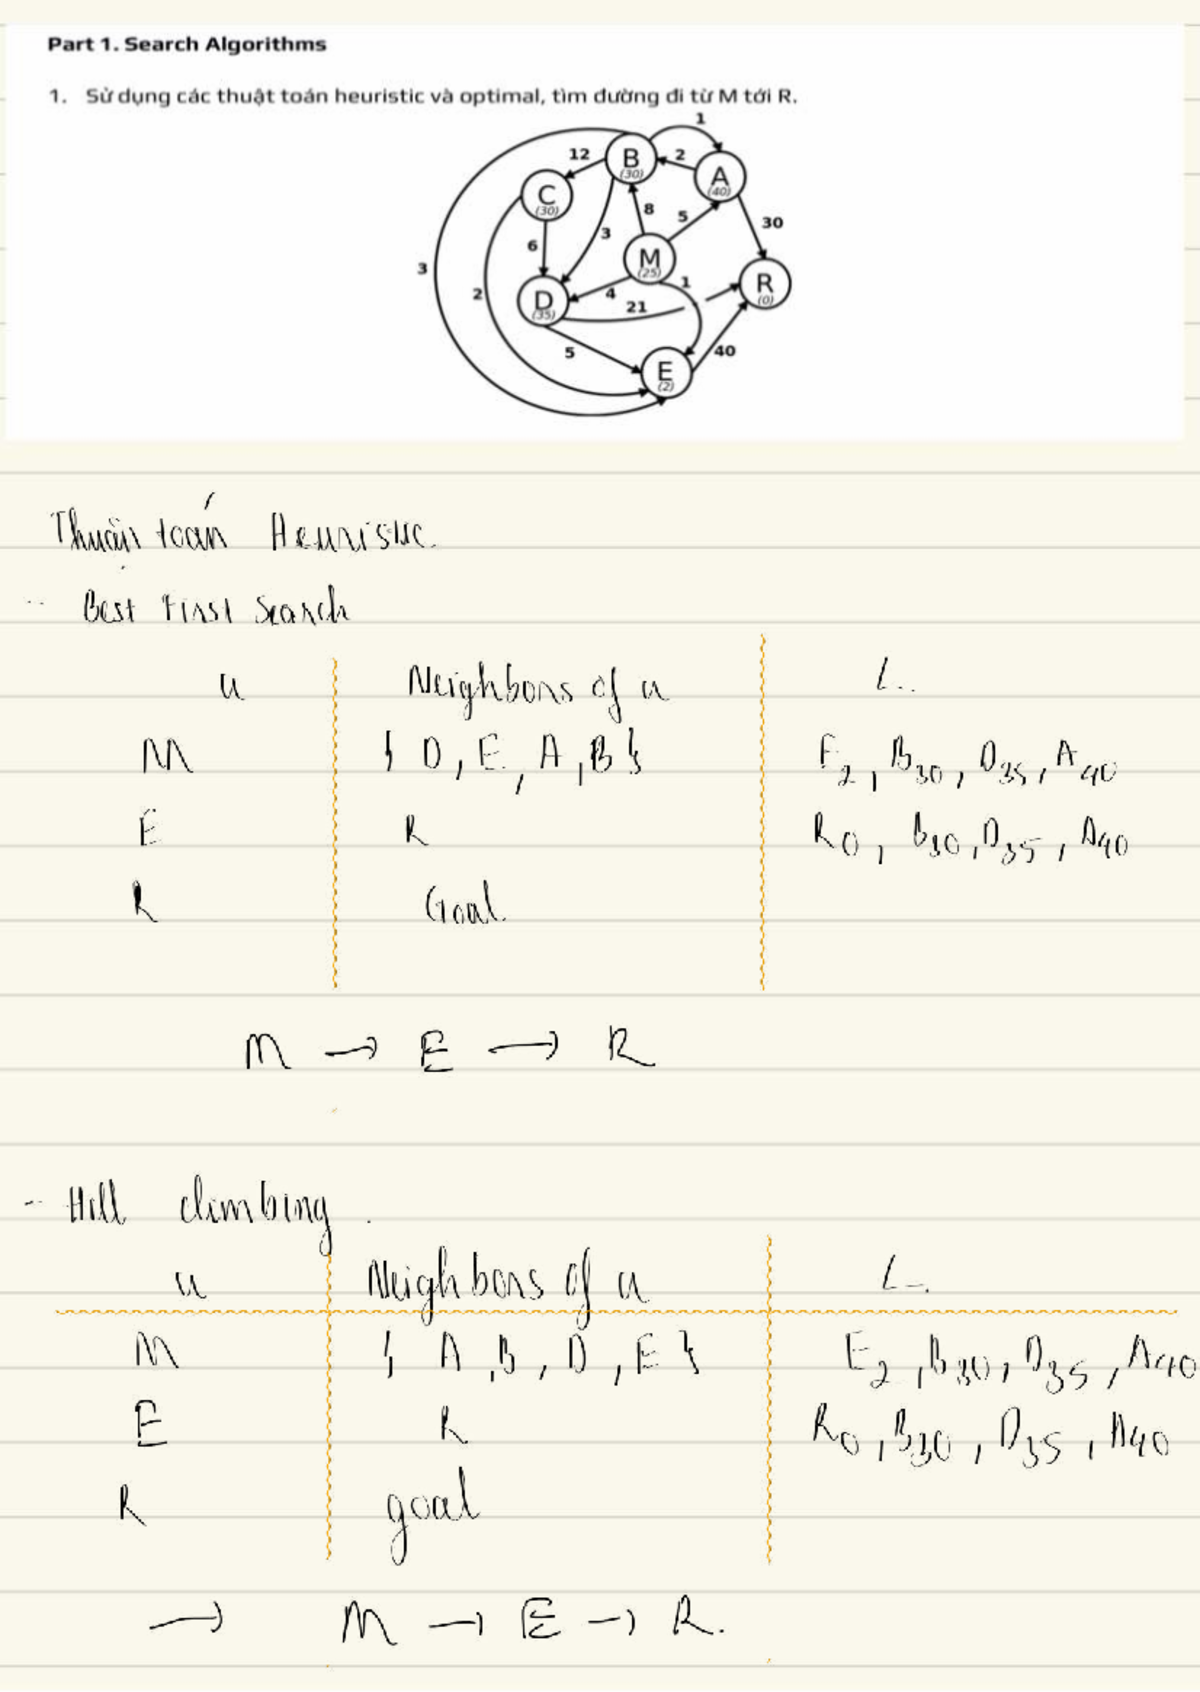 Part 1. Search Algorithms
1. Sử dụng các thuật toán heuristic và optimal, tìm đường đi từ M tới R.
1
12 B (30) 2 A (40)
C (30)
8 5 30
6 3 M (25)
3 2 D (35) 4 1 R (0)
21
5 E (2) 40
Thuật toán Heuristic.
- Best First Search
u Neighbors of u L..
M { D, E, A, B } E2, B30, D35, A40
E R R0, B30, D35, A40
R Goal.
M → E → R
- Hill climbing.
u Neighbors of u L..
M { A, B, D, E } E2, B30, D35, A40
E R R0, B30, D35, A40
R goal
→ M → E → R.